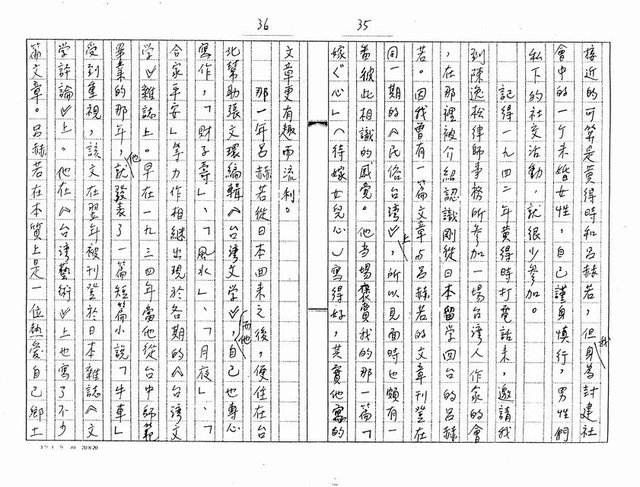 36
35
接近的可算是黃得時和呂赫若，但我身為封建社
會中的一個未婚女性，自己謹身慎行，男性們
私下的社交活動，就很少參加。
記得一九四二年黃得時打電話來，邀請我
到陳逸松律師事務所參加一場台灣人作家的會
，在那裡被介紹認識剛從日本留学回台的呂赫
若。因我曾有一篇文章與呂赫若的文章刊登在
同一期的《民俗台灣》上，所以見面時也頗有一
番彼此相識的感覺。他当場褒賞我的那一篇「
嫁ぐ心」（待嫁女兒心）寫得好，其實他寫的
文章更有趣而流利。
那一年呂赫若從日本回来之後，便住在台
北幫助張文環編輯《台湾文学》，而他自己也專心
寫作，「財子壽」、「風水」、「月夜」、「
合家平安」等力作相継出現於各期的《台湾文
学》雜誌上。早在一九三四年當他從台中師範
畢業的那年，他就發表了一篇短篇小說「牛車」
受到重視，該文在翌年被刊登於日本雜誌《文
学評論》上。他在《台湾藝術》上也寫了不少
篇文章。呂赫若在本質上是一位熱愛自己鄉土
20×20